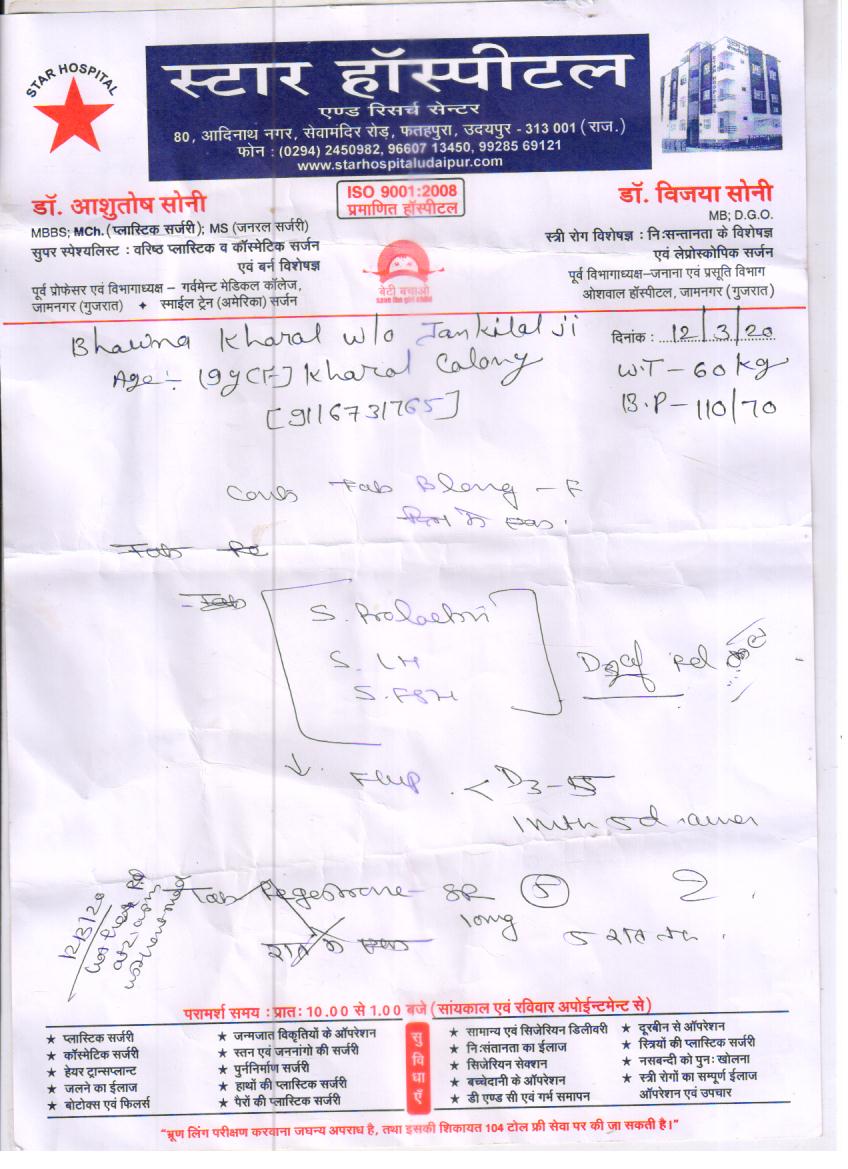 STAR HOSPITAL
स्टार हॉस्पीटल
एण्ड रिसर्च सेन्टर
80, आदिनाथ नगर, सेवामंदिर रोड़, फतहपुरा, उदयपुर - 313 001 (राज.)
फोन : (0294) 2450982, 96607 13450, 99285 69121
www.starhospitaludaipur.com
ISO 9001:2008
प्रमाणित हॉस्पीटल
डॉ. आशुतोष सोनी
MBBS; MCh. (प्लास्टिक सर्जरी); MS (जनरल सर्जरी)
सुपर स्पेश्यलिस्ट : वरिष्ठ प्लास्टिक व कॉस्मेटिक सर्जन
एवं बर्न विशेषज्ञ
पूर्व प्रोफेसर एवं विभागाध्यक्ष – गर्वमेन्ट मेडिकल कॉलेज,
जामनगर (गुजरात) ✦ स्माईल ट्रेन (अमेरिका) सर्जन
बेटी बचाओ
save the girl child
डॉ. विजया सोनी
MB; D.G.O.
स्त्री रोग विशेषज्ञ : निःसन्तानता के विशेषज्ञ
एवं लेप्रोस्कोपिक सर्जन
पूर्व विभागाध्यक्ष–जनाना एवं प्रसूति विभाग
ओशवाल हॉस्पीटल, जामनगर (गुजरात)
Bhawna Kharal w/o Jankilal ji
दिनांक : 12/3/20
Age :- 19y [F] Kharal Colony
W.T - 60 kg
[9116731765]
B.P - 110/70
Tab - F
Tab
Tab
S. Prolactin
S. LH
S. FSH
D3
Tab SR 5 2
long
12/3/20
परामर्श समय : प्रातः 10.00 से 1.00 बजे (सांयकाल एवं रविवार अपोईन्टमेन्ट से)
सुविधाएँ
★ प्लास्टिक सर्जरी
★ कॉस्मेटिक सर्जरी
★ हेयर ट्रान्सप्लान्ट
★ जलने का ईलाज
★ बोटोक्स एवं फिलर्स
★ जन्मजात विकृतियों के ऑपरेशन
★ स्तन एवं जननांगो की सर्जरी
★ पुर्ननिर्माण सर्जरी
★ हाथों की प्लास्टिक सर्जरी
★ पैरों की प्लास्टिक सर्जरी
★ सामान्य एवं सिजेरियन डिलीवरी
★ निःसंतानता का ईलाज
★ सिजेरियन सेक्शन
★ बच्चेदानी के ऑपरेशन
★ डी एण्ड सी एवं गर्भ समापन
★ दूरबीन से ऑपरेशन
★ स्त्रियों की प्लास्टिक सर्जरी
★ नसबन्दी को पुनः खोलना
★ स्त्री रोगों का सम्पूर्ण ईलाज
ऑपरेशन एवं उपचार
"भ्रूण लिंग परीक्षण करवाना जघन्य अपराध है, तथा इसकी शिकायत 104 टोल फ्री सेवा पर की जा सकती है।"